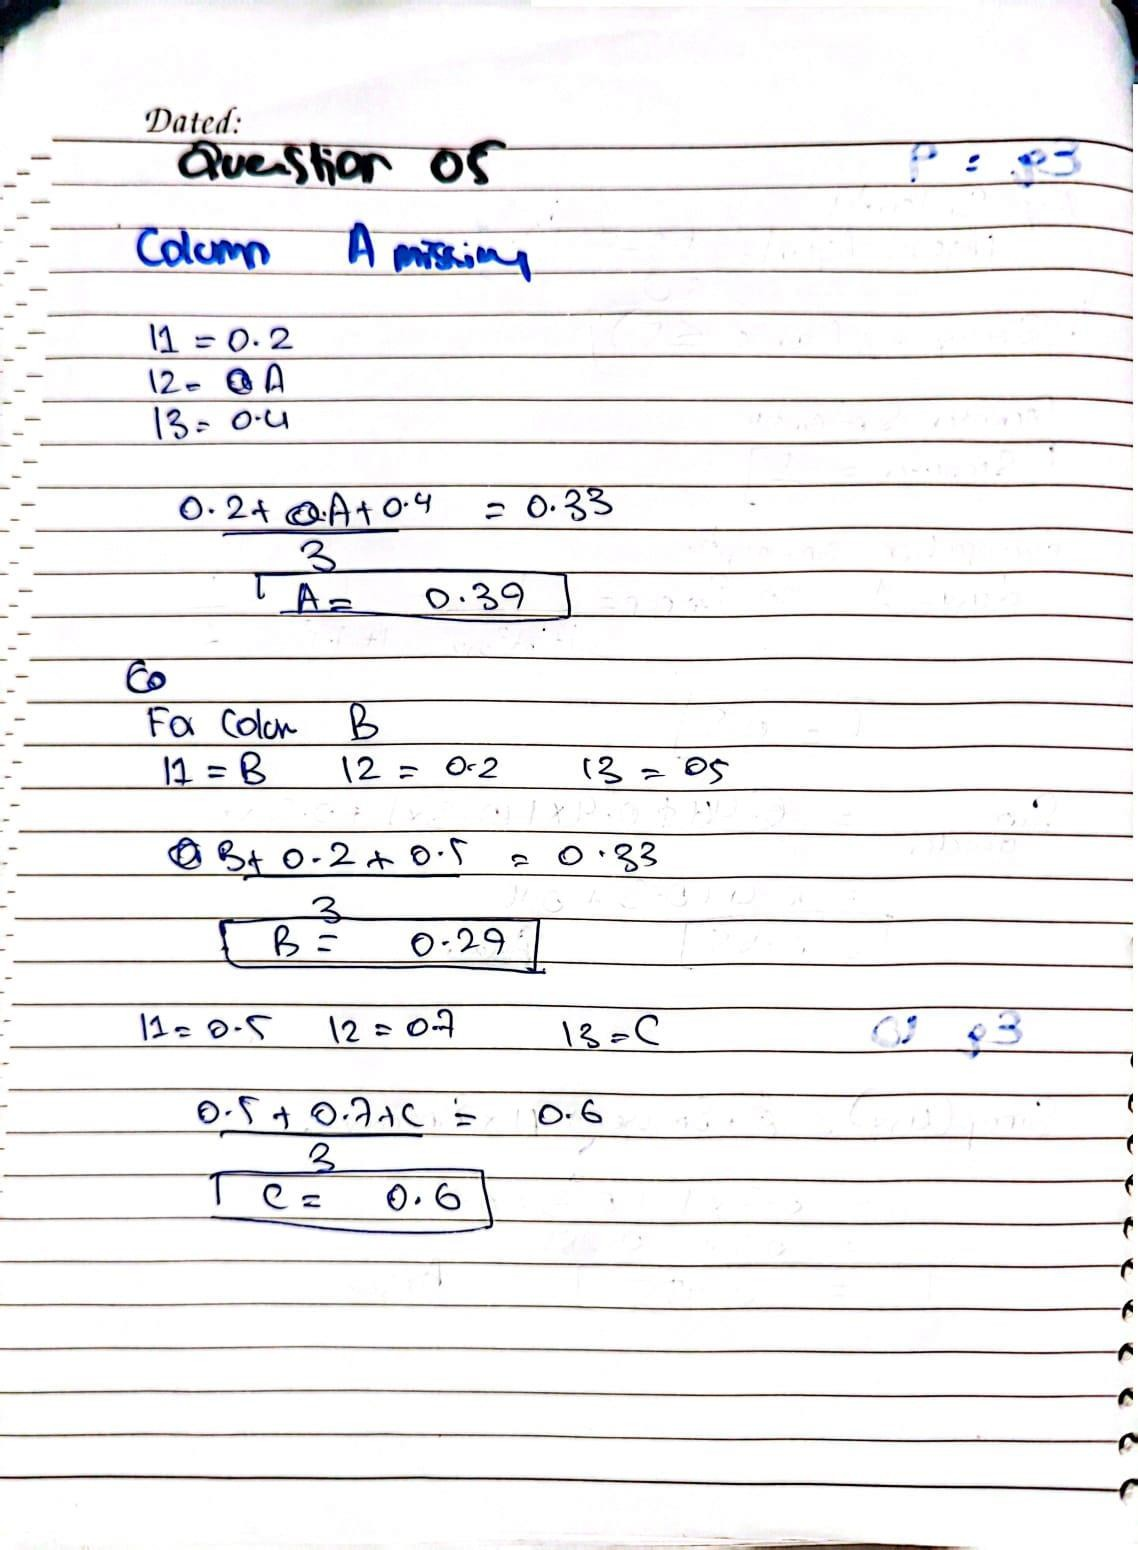 Dated:
Question 05
P : 3
Column A missing
11 = 0.2
12 = A
13 = 0.4
0.2 + A + 0.4 = 0.33
3
A = 0.39
For Colum B
11 = B 12 = 0.2 13 = 05
B + 0.2 + 0.5 = 0.33
3
B = 0.29
11 = 0.5 12 = 0.7 13 = C
0.5 + 0.7 + C = 0.6
3
C = 0.6